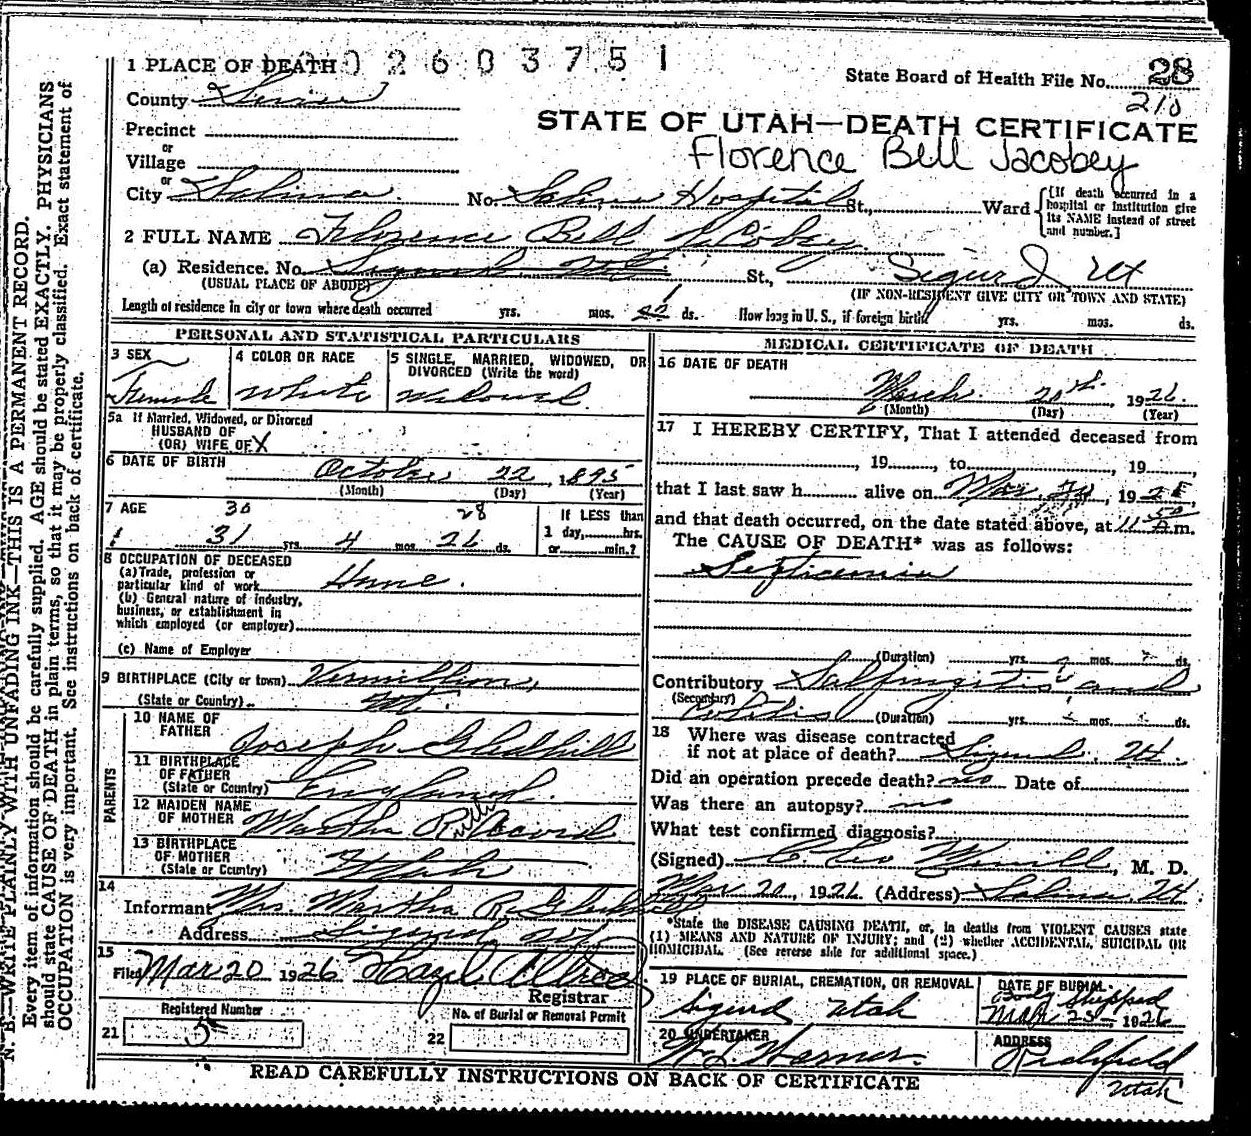 1 PLACE OF DEATH 0 2 6 0 3 7 5 1
State Board of Health File No. 28
210
County Sevier
STATE OF UTAH—DEATH CERTIFICATE
Precinct
Florence Bell Jacobey
or
Village
or
City Salina No. Salina Hospital St., Ward {[If death occurred in a hospital or institution give its NAME instead of street and number.]
2 FULL NAME Florence Bell Jacobey
(a) Residence. No. Sigurd, Utah St., Sigurd Ut
(USUAL PLACE OF ABODE) (IF NON-RESIDENT GIVE CITY OR TOWN AND STATE)
Length of residence in city or town where death occurred yrs. mos. ds. How long in U. S., if foreign birth yrs. mos. ds.
PERSONAL AND STATISTICAL PARTICULARS
3 SEX
Female
4 COLOR OR RACE
White
5 SINGLE, MARRIED, WIDOWED, OR DIVORCED (Write the word)
Widowed
5a If Married, Widowed, or Divorced
HUSBAND OF
(OR) WIFE OF X
6 DATE OF BIRTH October 22, 1895
(Month) (Day) (Year)
7 AGE 30 28
31 yrs. 4 mos. 26 ds.
If LESS than
1 day, hrs.
or min.?
8 OCCUPATION OF DECEASED
(a) Trade, profession or
particular kind of work Home.
(b) General nature of industry,
business, or establishment in
which employed (or employer)
(c) Name of Employer
9 BIRTHPLACE (City or town) Vermillion,
(State or Country) Ut.
PARENTS
10 NAME OF
FATHER Joseph Gledhill
11 BIRTHPLACE
OF FATHER
(State or Country) England.
12 MAIDEN NAME
OF MOTHER Martha R. Acord
13 BIRTHPLACE
OF MOTHER
(State or Country) Utah
14
Informant Mrs. Martha R. Gledhill
Address Sigurd Ut
15
Filed Mar 20 1926 Hazel Allred
Registrar
Registered Number
21 5
No. of Burial or Removal Permit
22
MEDICAL CERTIFICATE OF DEATH
16 DATE OF DEATH
March 20th, 1926.
(Month) (Day) (Year)
17 I HEREBY CERTIFY, That I attended deceased from
, 19 , to , 19 ,
that I last saw h alive on Mar. 20, 192
and that death occurred, on the date stated above, at 11 50 A.m.
The CAUSE OF DEATH* was as follows:
Septicemia
(Duration) yrs. mos. ds.
Contributory Salpingitis and
(Secondary) Colitis (Duration) yrs. mos. ds.
18 Where was disease contracted
if not at place of death? Sigurd, Ut.
Did an operation precede death? no Date of
Was there an autopsy? no
What test confirmed diagnosis?
(Signed) C. Leo Merrill, M. D.
Mar 20, 1926 (Address) Salina Ut
*State the DISEASE CAUSING DEATH, or, in deaths from VIOLENT CAUSES state
(1) MEANS AND NATURE OF INJURY; and (2) whether ACCIDENTAL, SUICIDAL OR
HOMICIDAL. (See reverse side for additional space.)
19 PLACE OF BURIAL, CREMATION, OR REMOVAL
Sigurd Utah
DATE OF BURIAL
Body Shipped
Mar 23 1926
20 UNDERTAKER
Warner.
ADDRESS
Richfield
Utah
READ CAREFULLY INSTRUCTIONS ON BACK OF CERTIFICATE
N. B.—WRITE PLAINLY WITH UNFADING INK—THIS IS A PERMANENT RECORD.
Every item of information should be carefully supplied. AGE should be stated EXACTLY. PHYSICIANS
should state CAUSE OF DEATH in plain terms, so that it may be properly classified. Exact statement of
OCCUPATION is very important. See instructions on back of certificate.